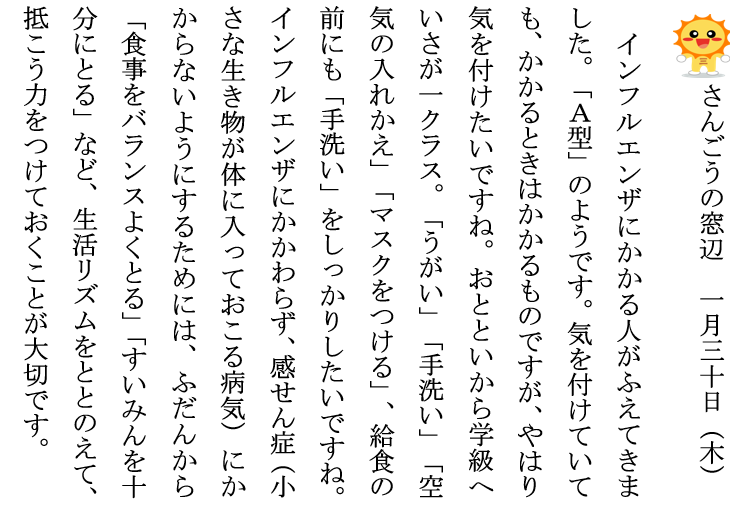 さんごうの窓辺　一月三十日（木）
　インフルエンザにかかる人がふえてきま
した。「Ａ型」のようです。気を付けていて
も、かかるときはかかるものですが、やはり
気を付けたいですね。おとといから学級へ
いさが一クラス。「うがい」「手洗い」「空
気の入れかえ」「マスクをつける」、給食の
前にも「手洗い」をしっかりしたいですね。
インフルエンザにかかわらず、感せん症（小
さな生き物が体に入っておこる病気）にか
からないようにするためには、ふだんから
「食事をバランスよくとる」「すいみんを十
分にとる」など、生活リズムをととのえて、
抵こう力をつけておくことが大切です。